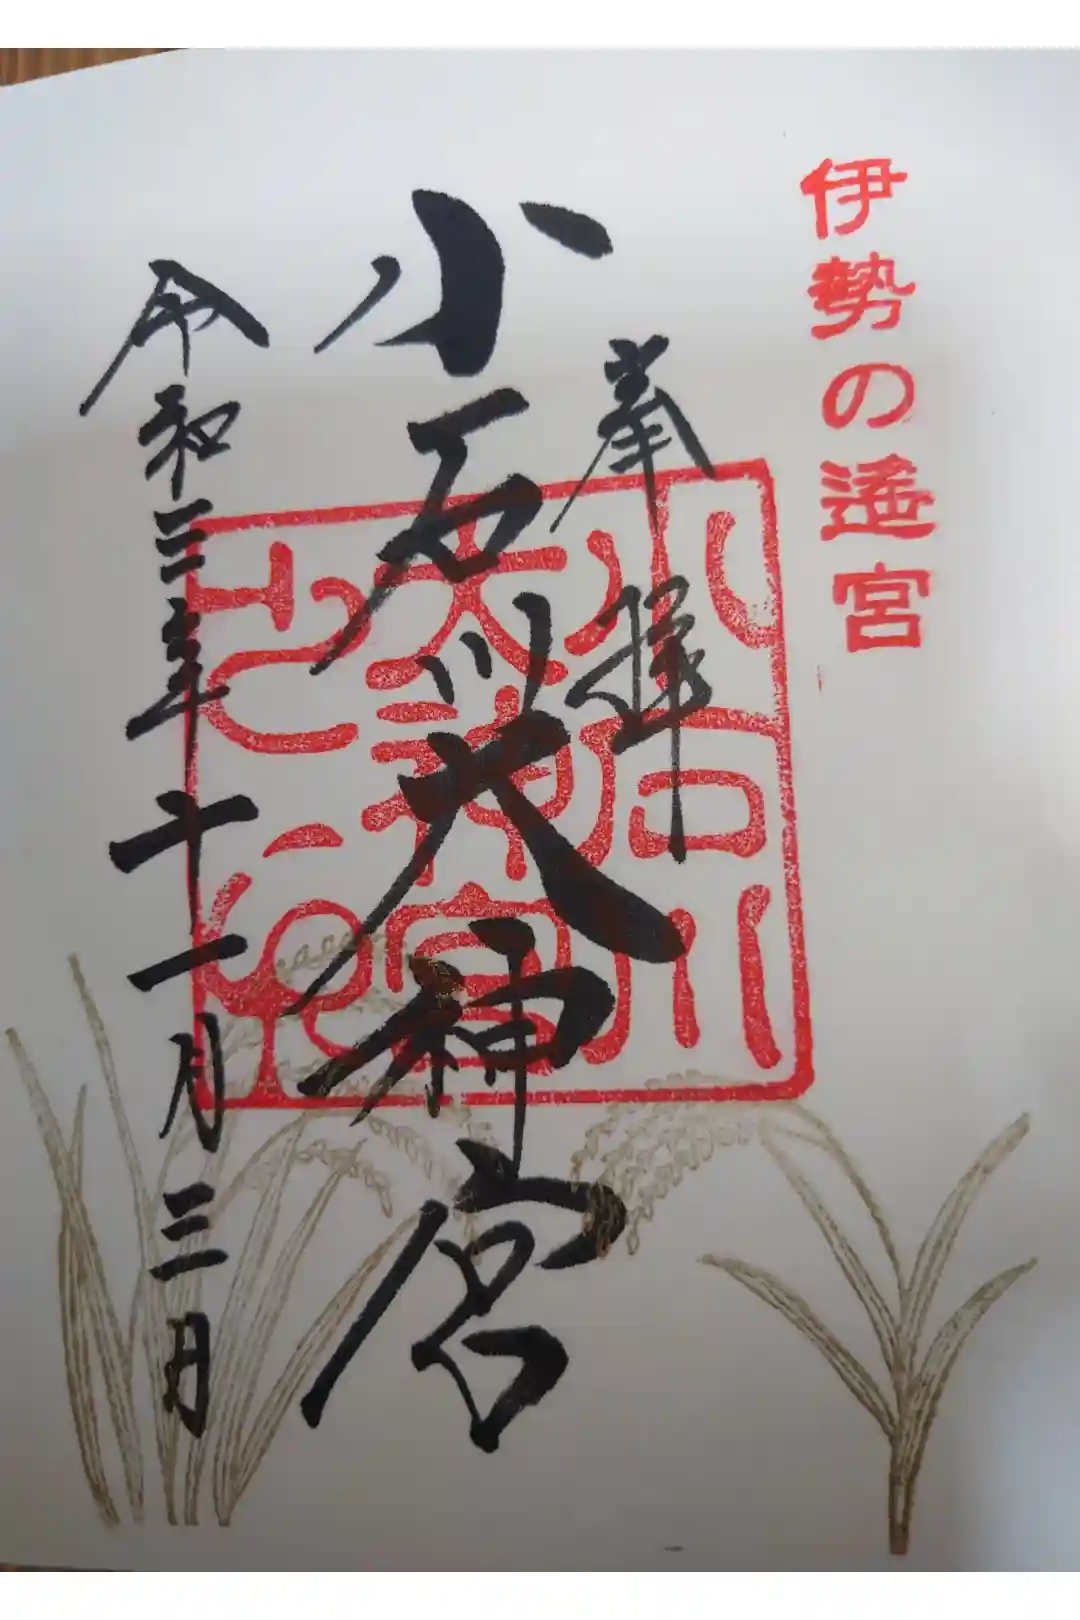 伊勢の遙宮
奉拝
小石川大神宮
令和三年十一月三日
小石川
大神宮